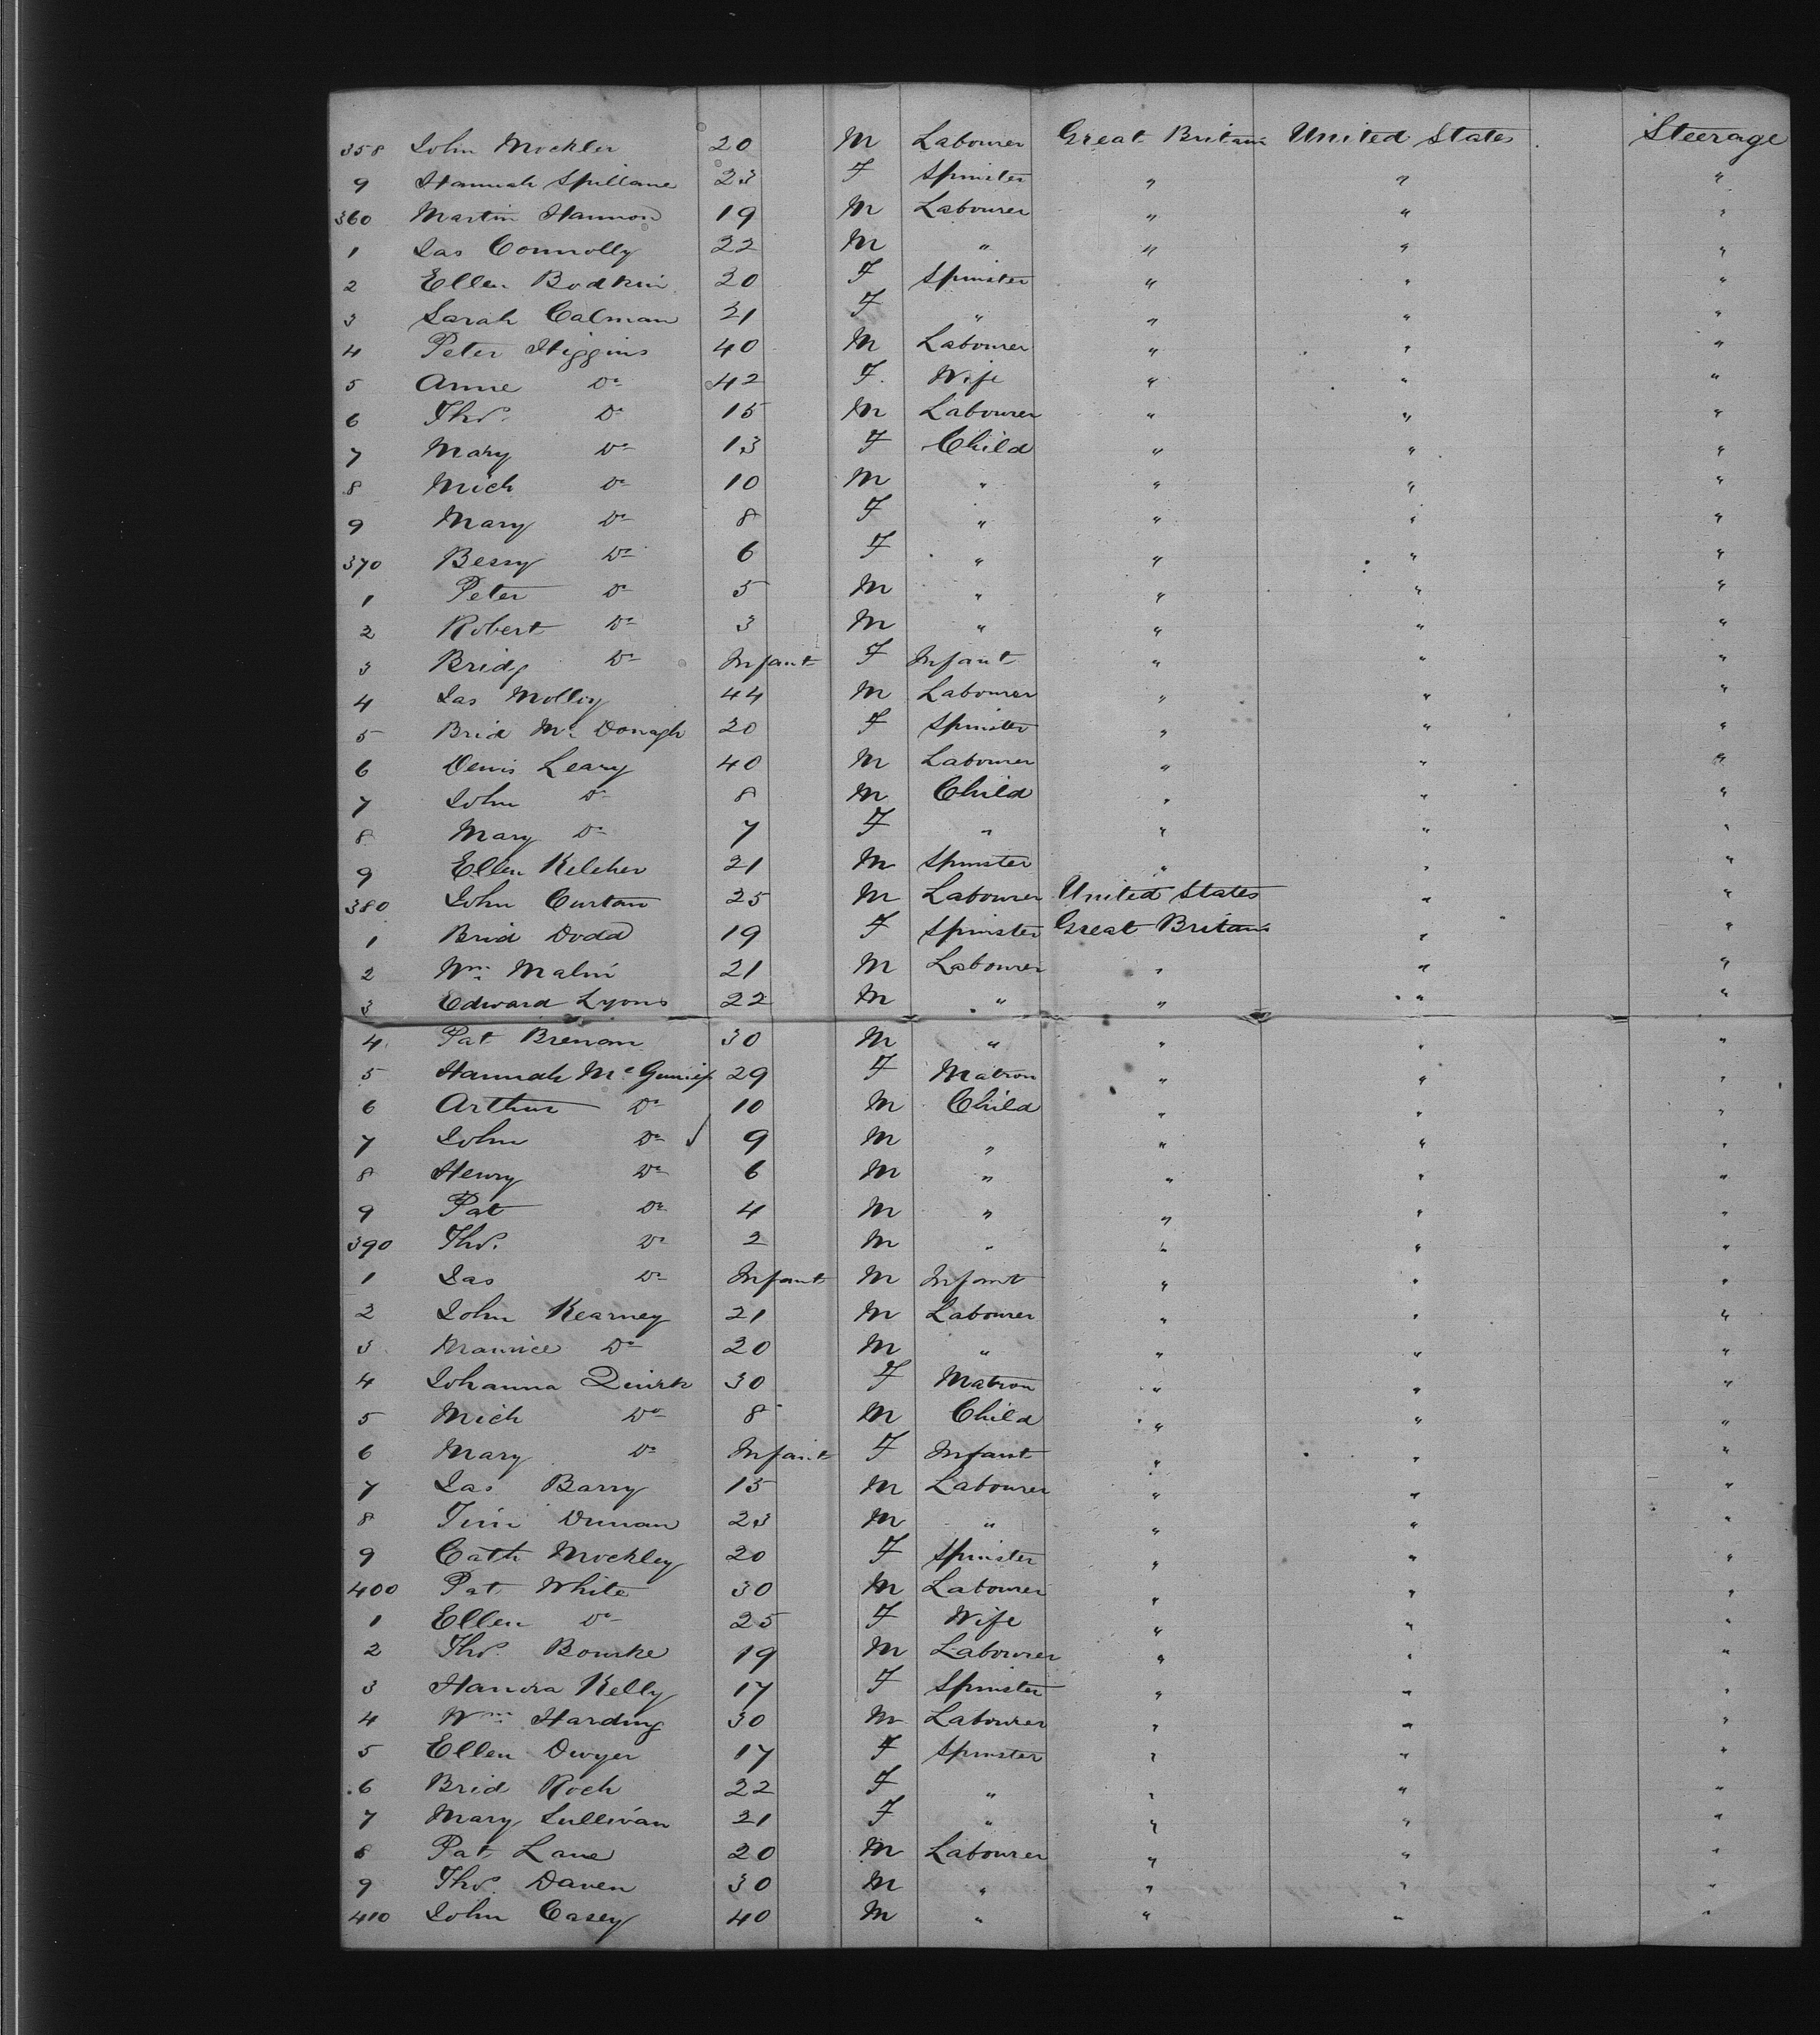 358 John Mockler 20 M Labourer Great Britain United States Steerage
9 Hannah Spillane 23 F Spinster " " "
360 Martin Hannon 19 M Labourer " " "
1 Jas Connolly 22 M " " " "
2 Ellen Bodkin 20 F Spinster " " "
3 Sarah Calman 21 F " " " "
4 Peter Higgins 40 M Labourer " " "
5 Anne Do 42 F Wife " " "
6 Thos. Do 15 M Labourer " " "
7 Mary Do 13 F Child " " "
8 Mich Do 10 M " " " "
9 Mary Do 8 F " " " "
370 Bessy Do 6 F " " " "
1 Peter Do 5 M " " " "
2 Robert Do 3 M " " " "
3 Bridg Do Infant F Infant " " "
4 Jas Molloy 44 M Labourer " " "
5 Brid Mc Donagh 20 F Spinster " " "
6 Denis Leary 40 M Labourer " " "
7 John Do 8 M Child " " "
8 Mary Do 7 F " " " "
9 Ellen Kelcher 21 M Spinster " " "
380 John Curtan 25 M Labourer United States " "
1 Brid Dodd 19 F Spinster Great Britain " "
2 Wm Malin 21 M Labourer " " "
3 Edward Lyons 22 M " " " "
4 Pat Brenan 30 M " " " "
5 Hannah Mc 29 F Matron " " "
6 Arthur Do 10 M Child " " "
7 John Do 9 M " " " "
8 Henry Do 6 M " " " "
9 Pat Do 4 M " " " "
390 Thos. Do 2 M " " " "
1 Jas Do Infant M Infant " " "
2 John Kearney 21 M Labourer " " "
3 Maurice Do 20 M " " " "
4 Johanna Quirk 30 F Matron " " "
5 Mich Do 8 M Child " " "
6 Mary Do Infant F Infant " " "
7 Jas Barry 15 M Labourer " " "
8 Tim 23 M " " " "
9 Cath Mockley 20 F Spinster " " "
400 Pat White 30 M Labourer " " "
1 Ellen Do 25 F Wife " " "
2 Thos. Bourke 19 M Labourer " " "
3 Hanora Kelly 17 F Spinster " " "
4 Wm Harding 30 M Labourer " " "
5 Ellen Dwyer 17 F Spinster " " "
6 Brid Roch 22 F " " " "
7 Mary Sullivan 21 F " " " "
8 Pat Lane 20 M Labourer " " "
9 Thos. Daven 30 M " " " "
410 John Casey 40 M " " " "